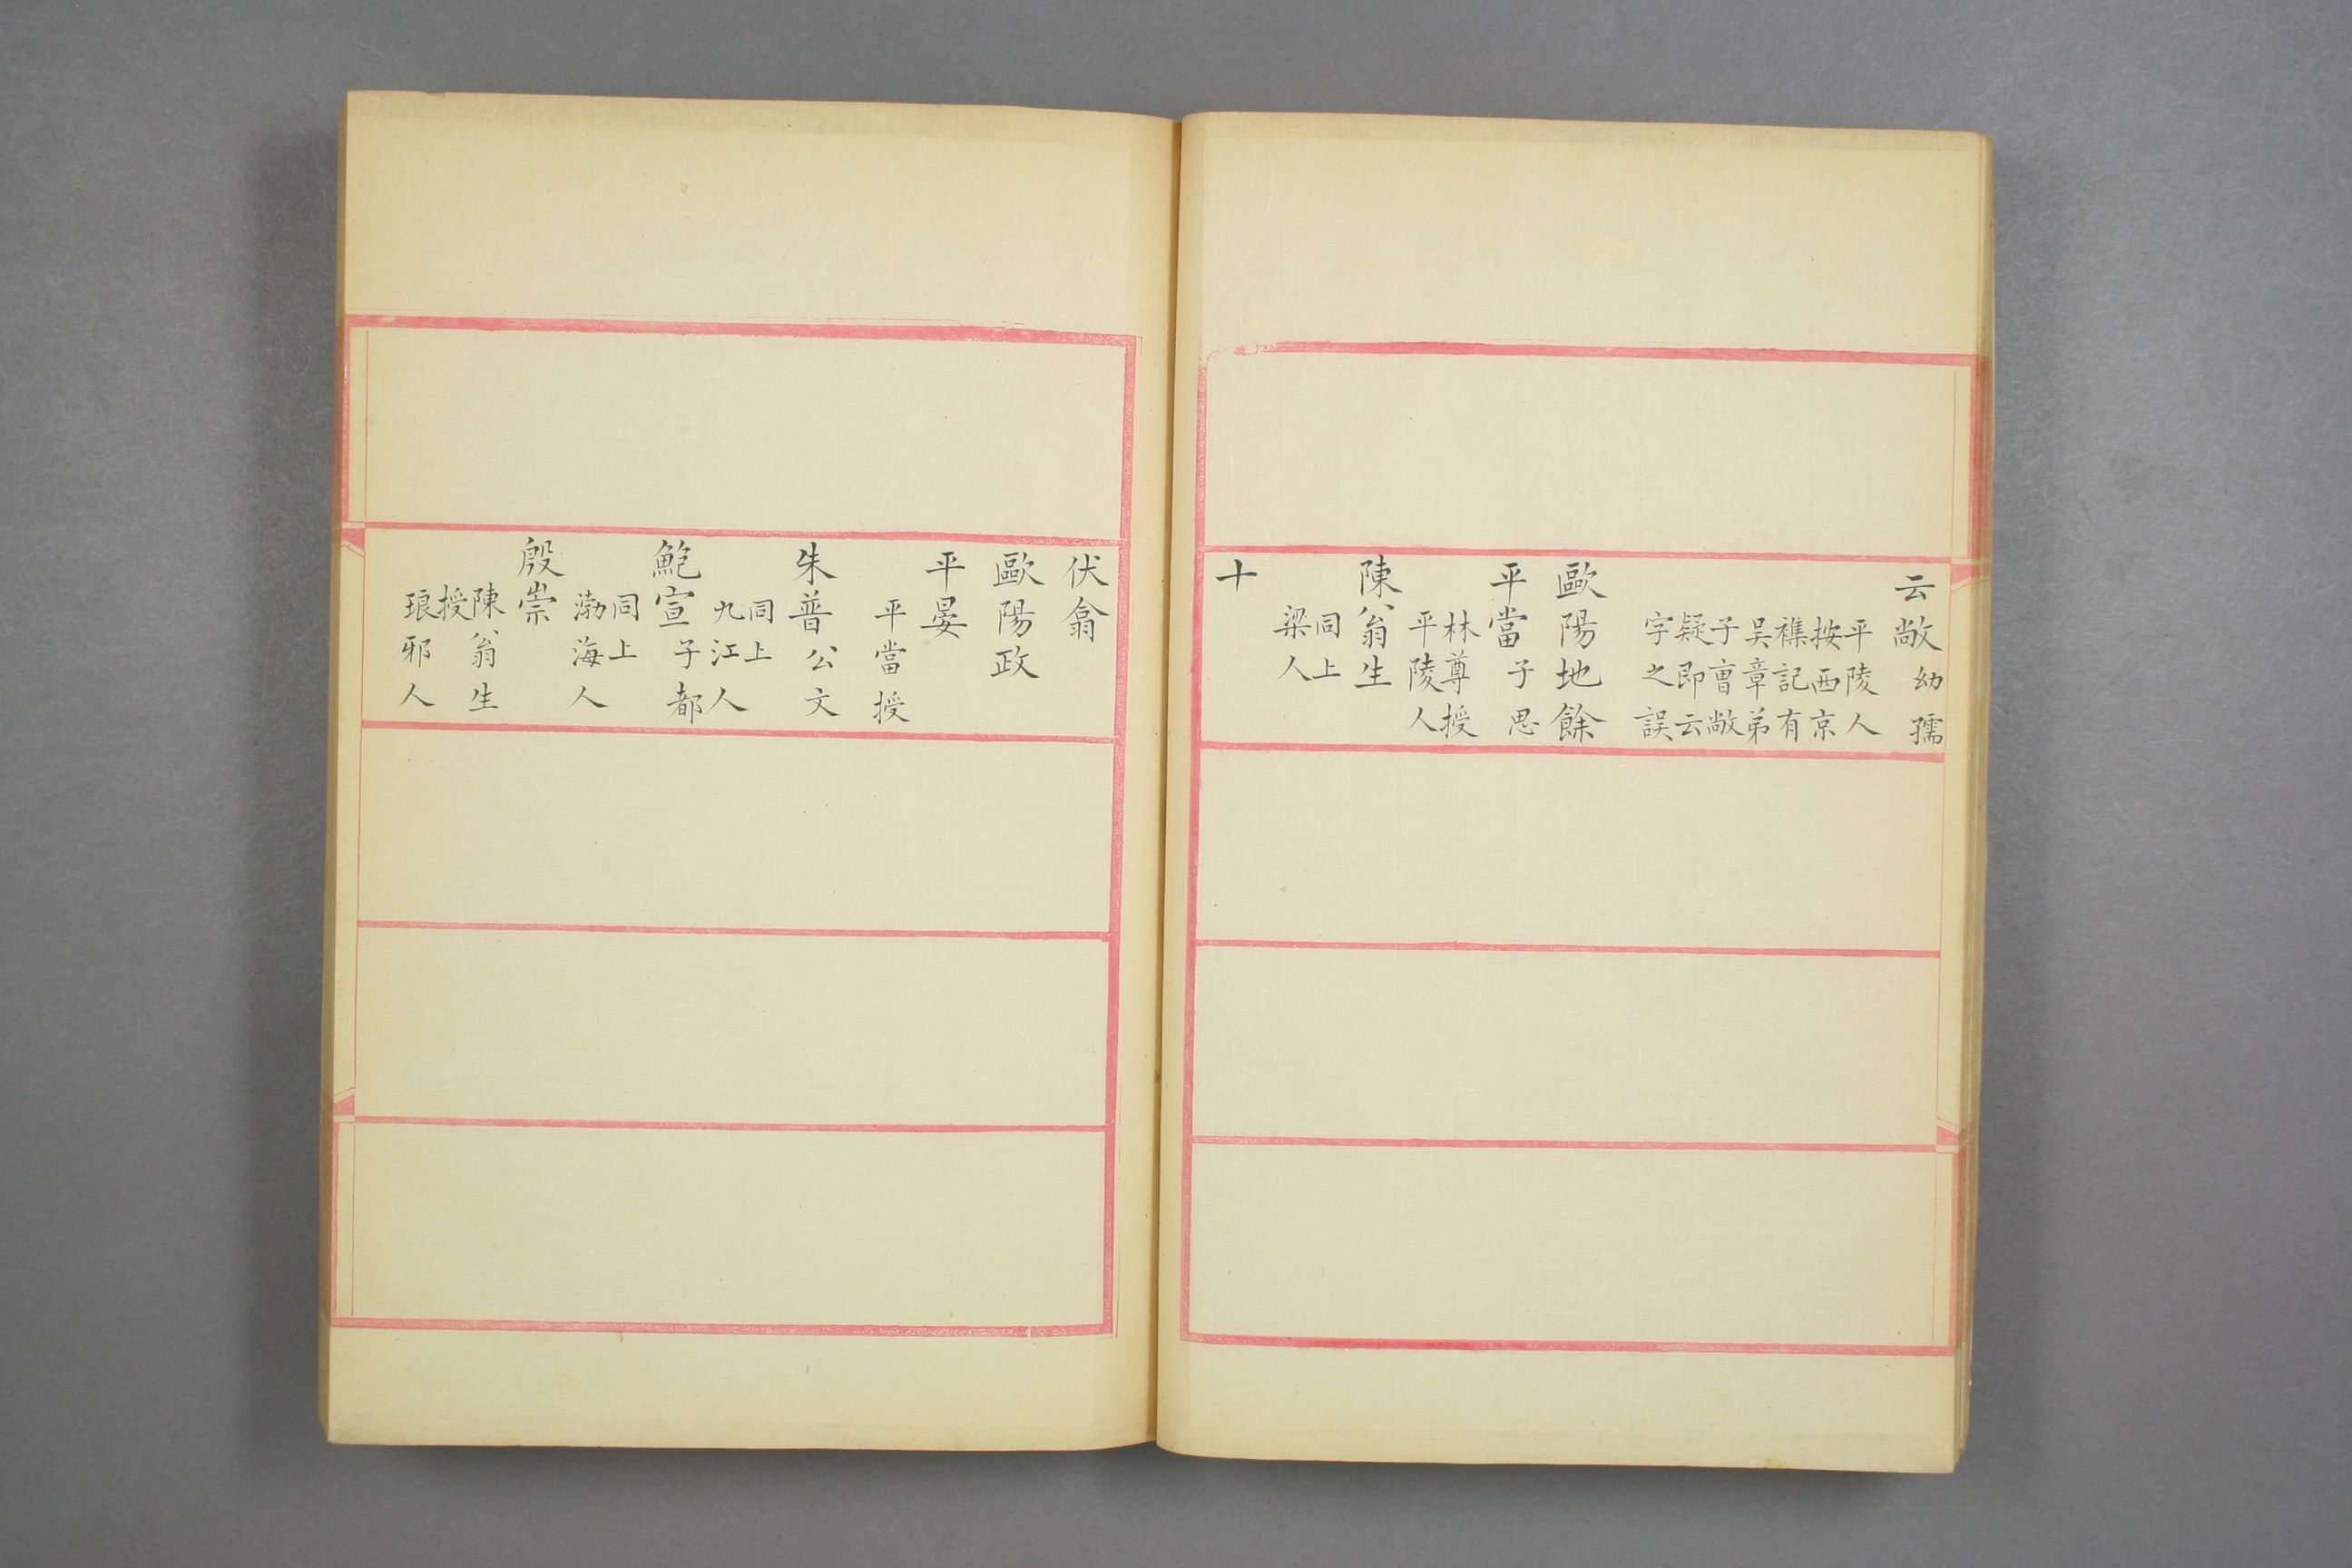 云敞幼孺
平陵人
按西京
襍記有
吴章弟
子曺敞
疑即云
字之誤
歐陽地餘
平當子思
林尊授
平陵人
陳翁生
同上
梁人
十
伏翕
歐陽政
平晏
平當授
朱普公文
同上
九江人
鮑宣子都
同上
渤海人
殷崇
陳翁生
授
琅邪人